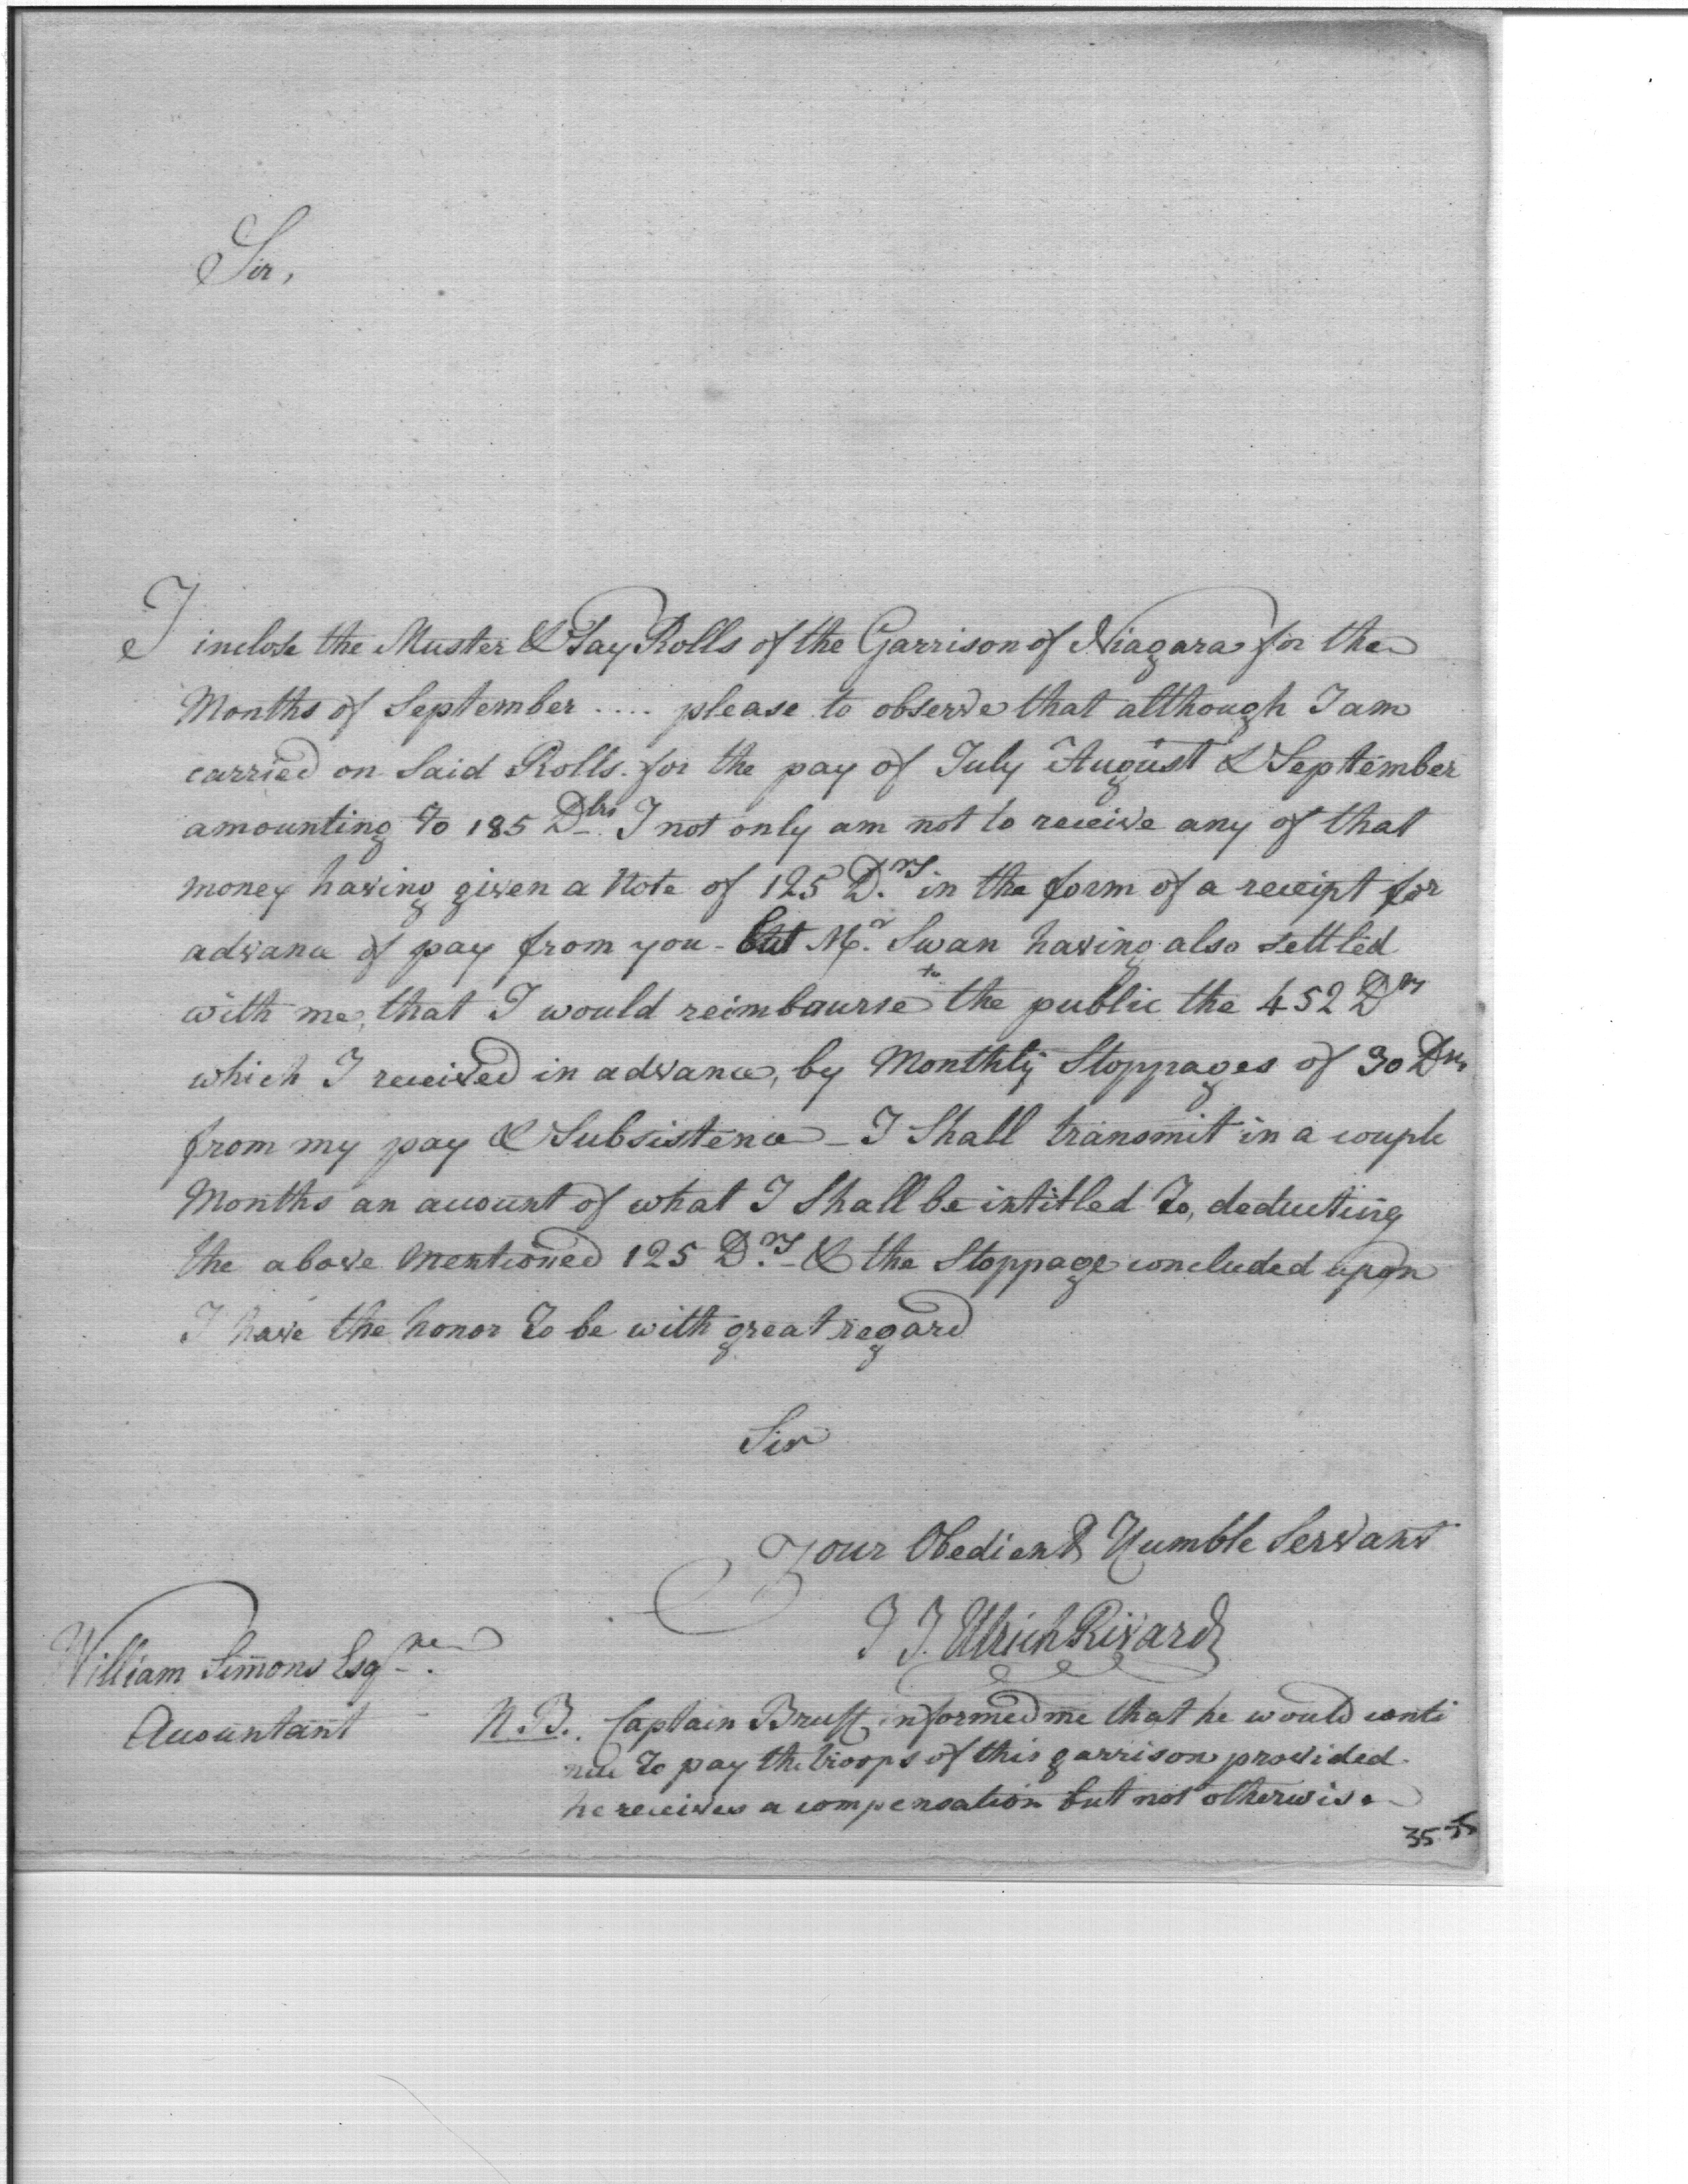 Sir,
I inclose the Muster & Pay Rolls of the Garrison of Niagara for the
Months of September .... please to observe that although I am
carried on Said Rolls. for the pay of July August & September
amounting to 185 Dlrs. I not only am not to receive any of that
money having given a Note of 125 D.rs in the form of a receipt for
advance of pay from you - but Mr. Swan having also settled
with me, that I would reimbourse to the public the 452 Drs
which I received in advance, by Monthly Stoppages of 30 Drs
from my pay & Subsistence - I Shall transmit in a couple
Months an account of what I Shall be intitled to, deducting
the above Mentioned 125 D.rs - & the Stoppage concluded upon
I have the honor to be with great regard
Sir
Your Obedient & Humble Servant
J J. Ulrich Rivardi
William Simons Esqre.
Accountant
N.B. Captain Bruff informed me that he would conti
nue to pay the troops of this garrison provided
he receives a compensation but not otherwise
35